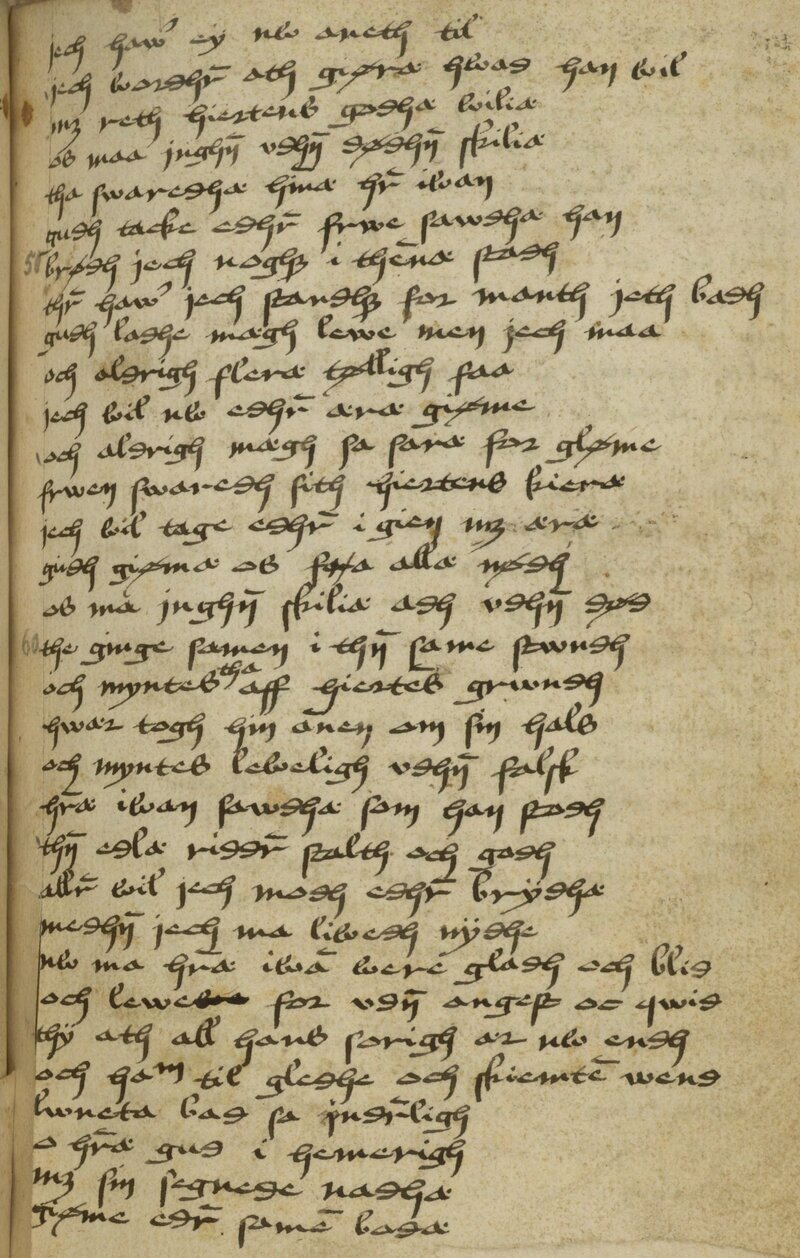 jech haw̓ ey nw aneth til
jech wordhr̄ ath gøræ hwas han wil
mꝫ reth hiertens godha wiliæ
os maa jnghn̄ vdhn̄ dødhn̄ skiliæ
tha swaredhæ hinæ hr̄ iwan
gudh tacke edhr̄ frwe sawdhæ han
brødh jech noghꝫ i thēnæ stadh
thr̄ haw̓ jech standhꝫ for manth jeth badh
gudh ladhe mægh lewe men jech maa
och aldrigh fleræ tølligh faa
jech wil nw edhr̄ æræ gøme
och aldrigh mægh sa saræ for gløme
frwen swaredh sith hiertens kieræ
jech wil tage edhr̄ i gien mꝫ æræ
gudh gømæ os fra allæ nødh
os ma jnghn̄ skiliæ adh vdhn̄ død
the ginge samen i thn̄ same stwndh
och myntes tha aff hiertēs grwndh
hwar togh hin ānen om sin hals
och myntes leweligh vdhn̄ falsk
hr̄æ iwan sawdhæ som han stodh
thn̄ edlæ riddr̄ stalth och godh
allr̄ wil jech modh edhr̄ brÿdhæ
medhn̄ jech ma liwedh nÿdhe
nw ma hr̄æ iwā werē gladh och blid
och lewe for vdn̄ angest oc qwid
thÿ ath all hans sorigh ær nw endh
och haᵐ til gledhe och skiemtē wend
lwneta bad sa jndr̄ligh
o hr̄æ gud i hemerigh
mꝫ sin segnede nadhæ
gøme edr̄ samē badæ